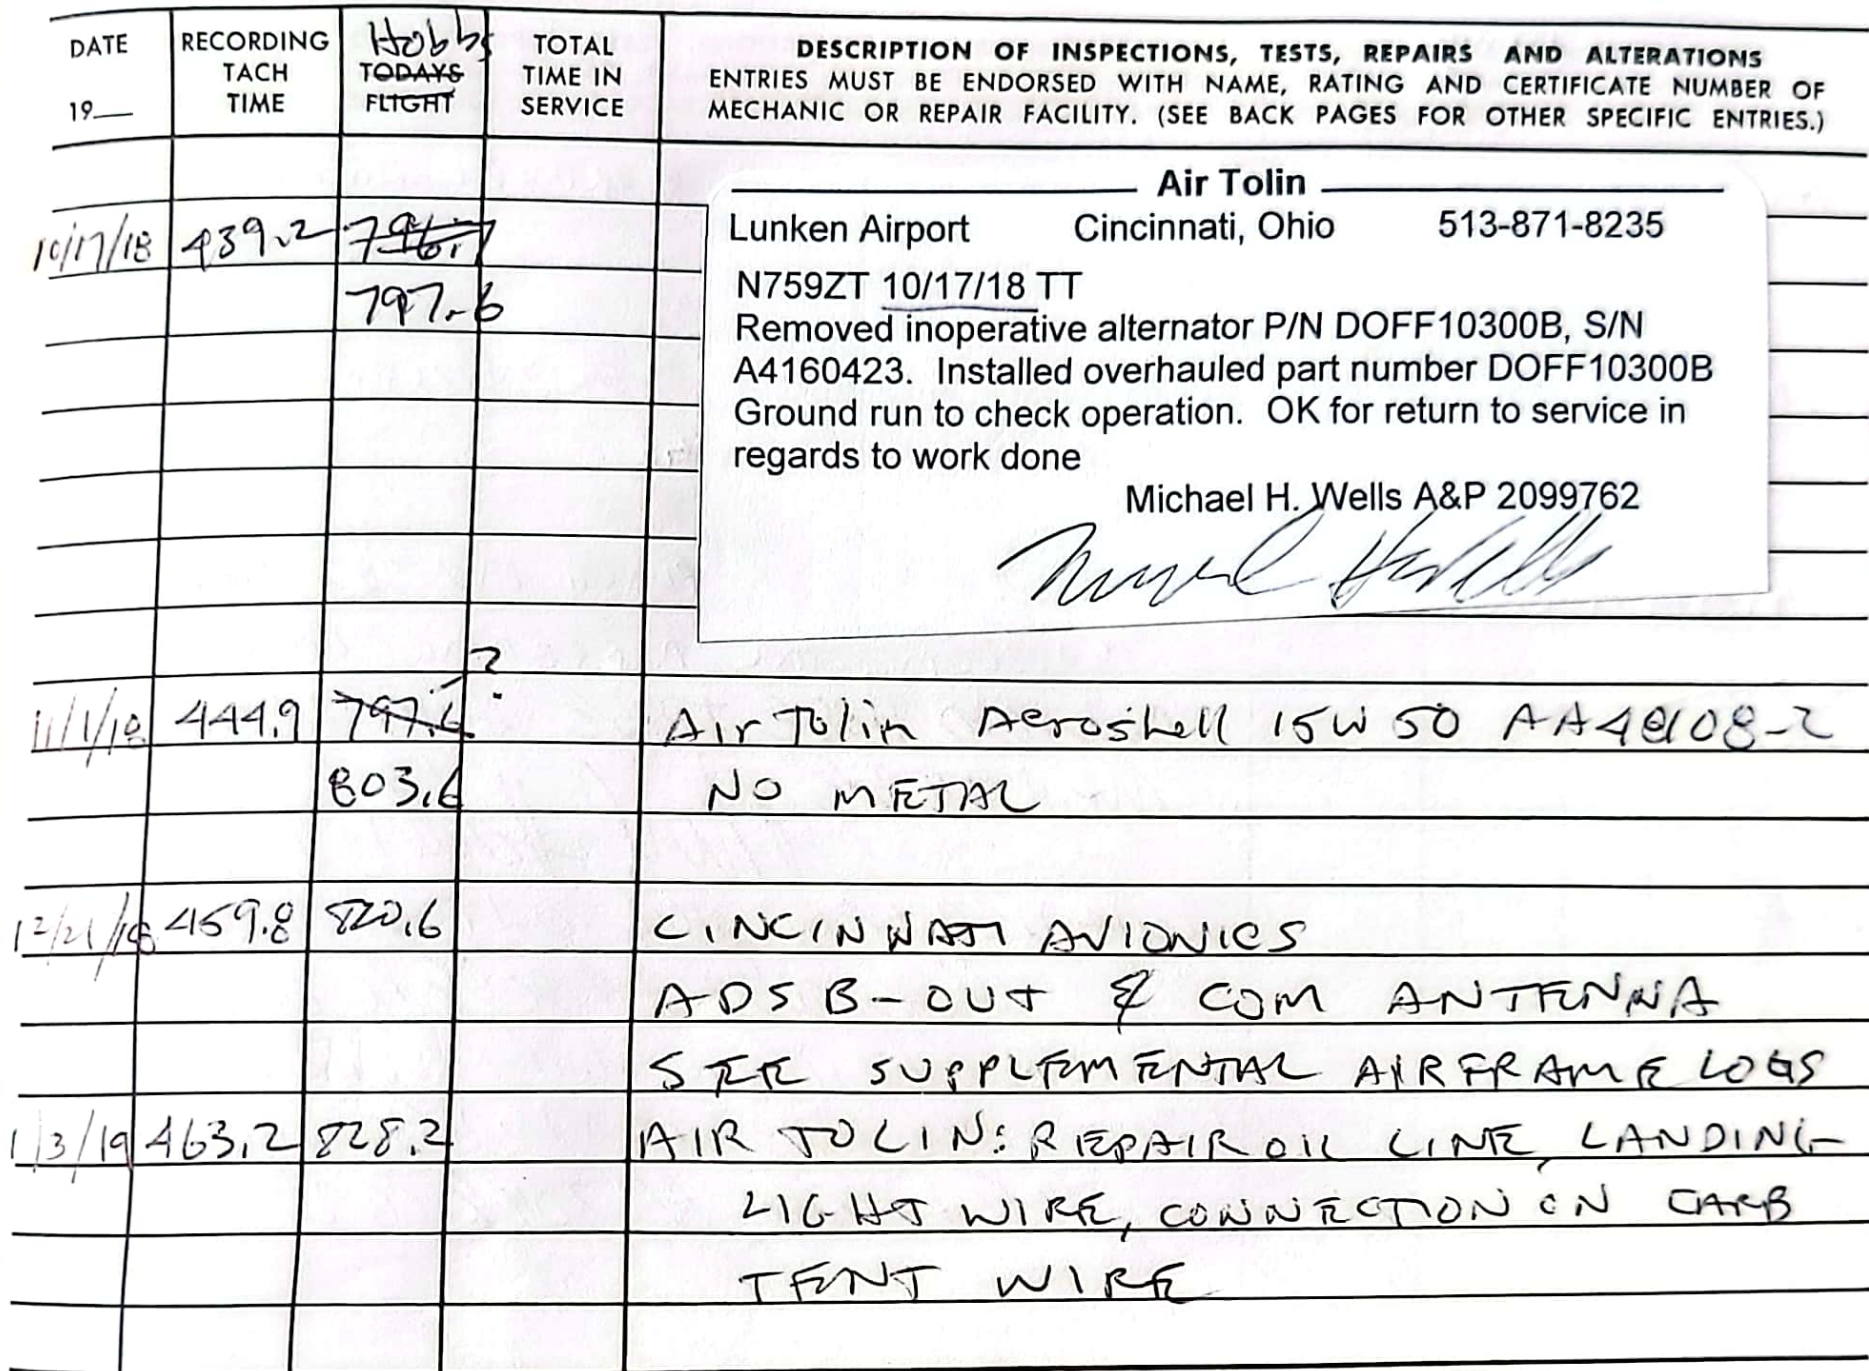 DATE
19__
RECORDING
TACH
TIME
Hobbs
TODAYS
FLIGHT
TOTAL
TIME IN
SERVICE
DESCRIPTION OF INSPECTIONS, TESTS, REPAIRS AND ALTERATIONS
ENTRIES MUST BE ENDORSED WITH NAME, RATING AND CERTIFICATE NUMBER OF
MECHANIC OR REPAIR FACILITY. (SEE BACK PAGES FOR OTHER SPECIFIC ENTRIES.)
10/17/18 439.2 796.7
797.6
Air Tolin
Lunken Airport Cincinnati, Ohio 513-871-8235
N759ZT 10/17/18 TT
Removed inoperative alternator P/N DOFF10300B, S/N
A4160423. Installed overhauled part number DOFF10300B
Ground run to check operation. OK for return to service in
regards to work done
Michael H. Wells A&P 2099762
11/1/18 444.9 797.6 ? Air Tolin Aeroshell 15W50 AA48108-2
803.6 NO METAL
12/21/18 459.8 820.6 CINCINNATI AVIONICS
ADSB-OUT & COM ANTENNA
SEE SUPPLEMENTAL AIRFRAME LOGS
1/3/19 463.2 828.2 AIR TOLIN: REPAIR OIL LINE, LANDING
LIGHT WIRE, CONNECTION ON CARB
TENT WIRE